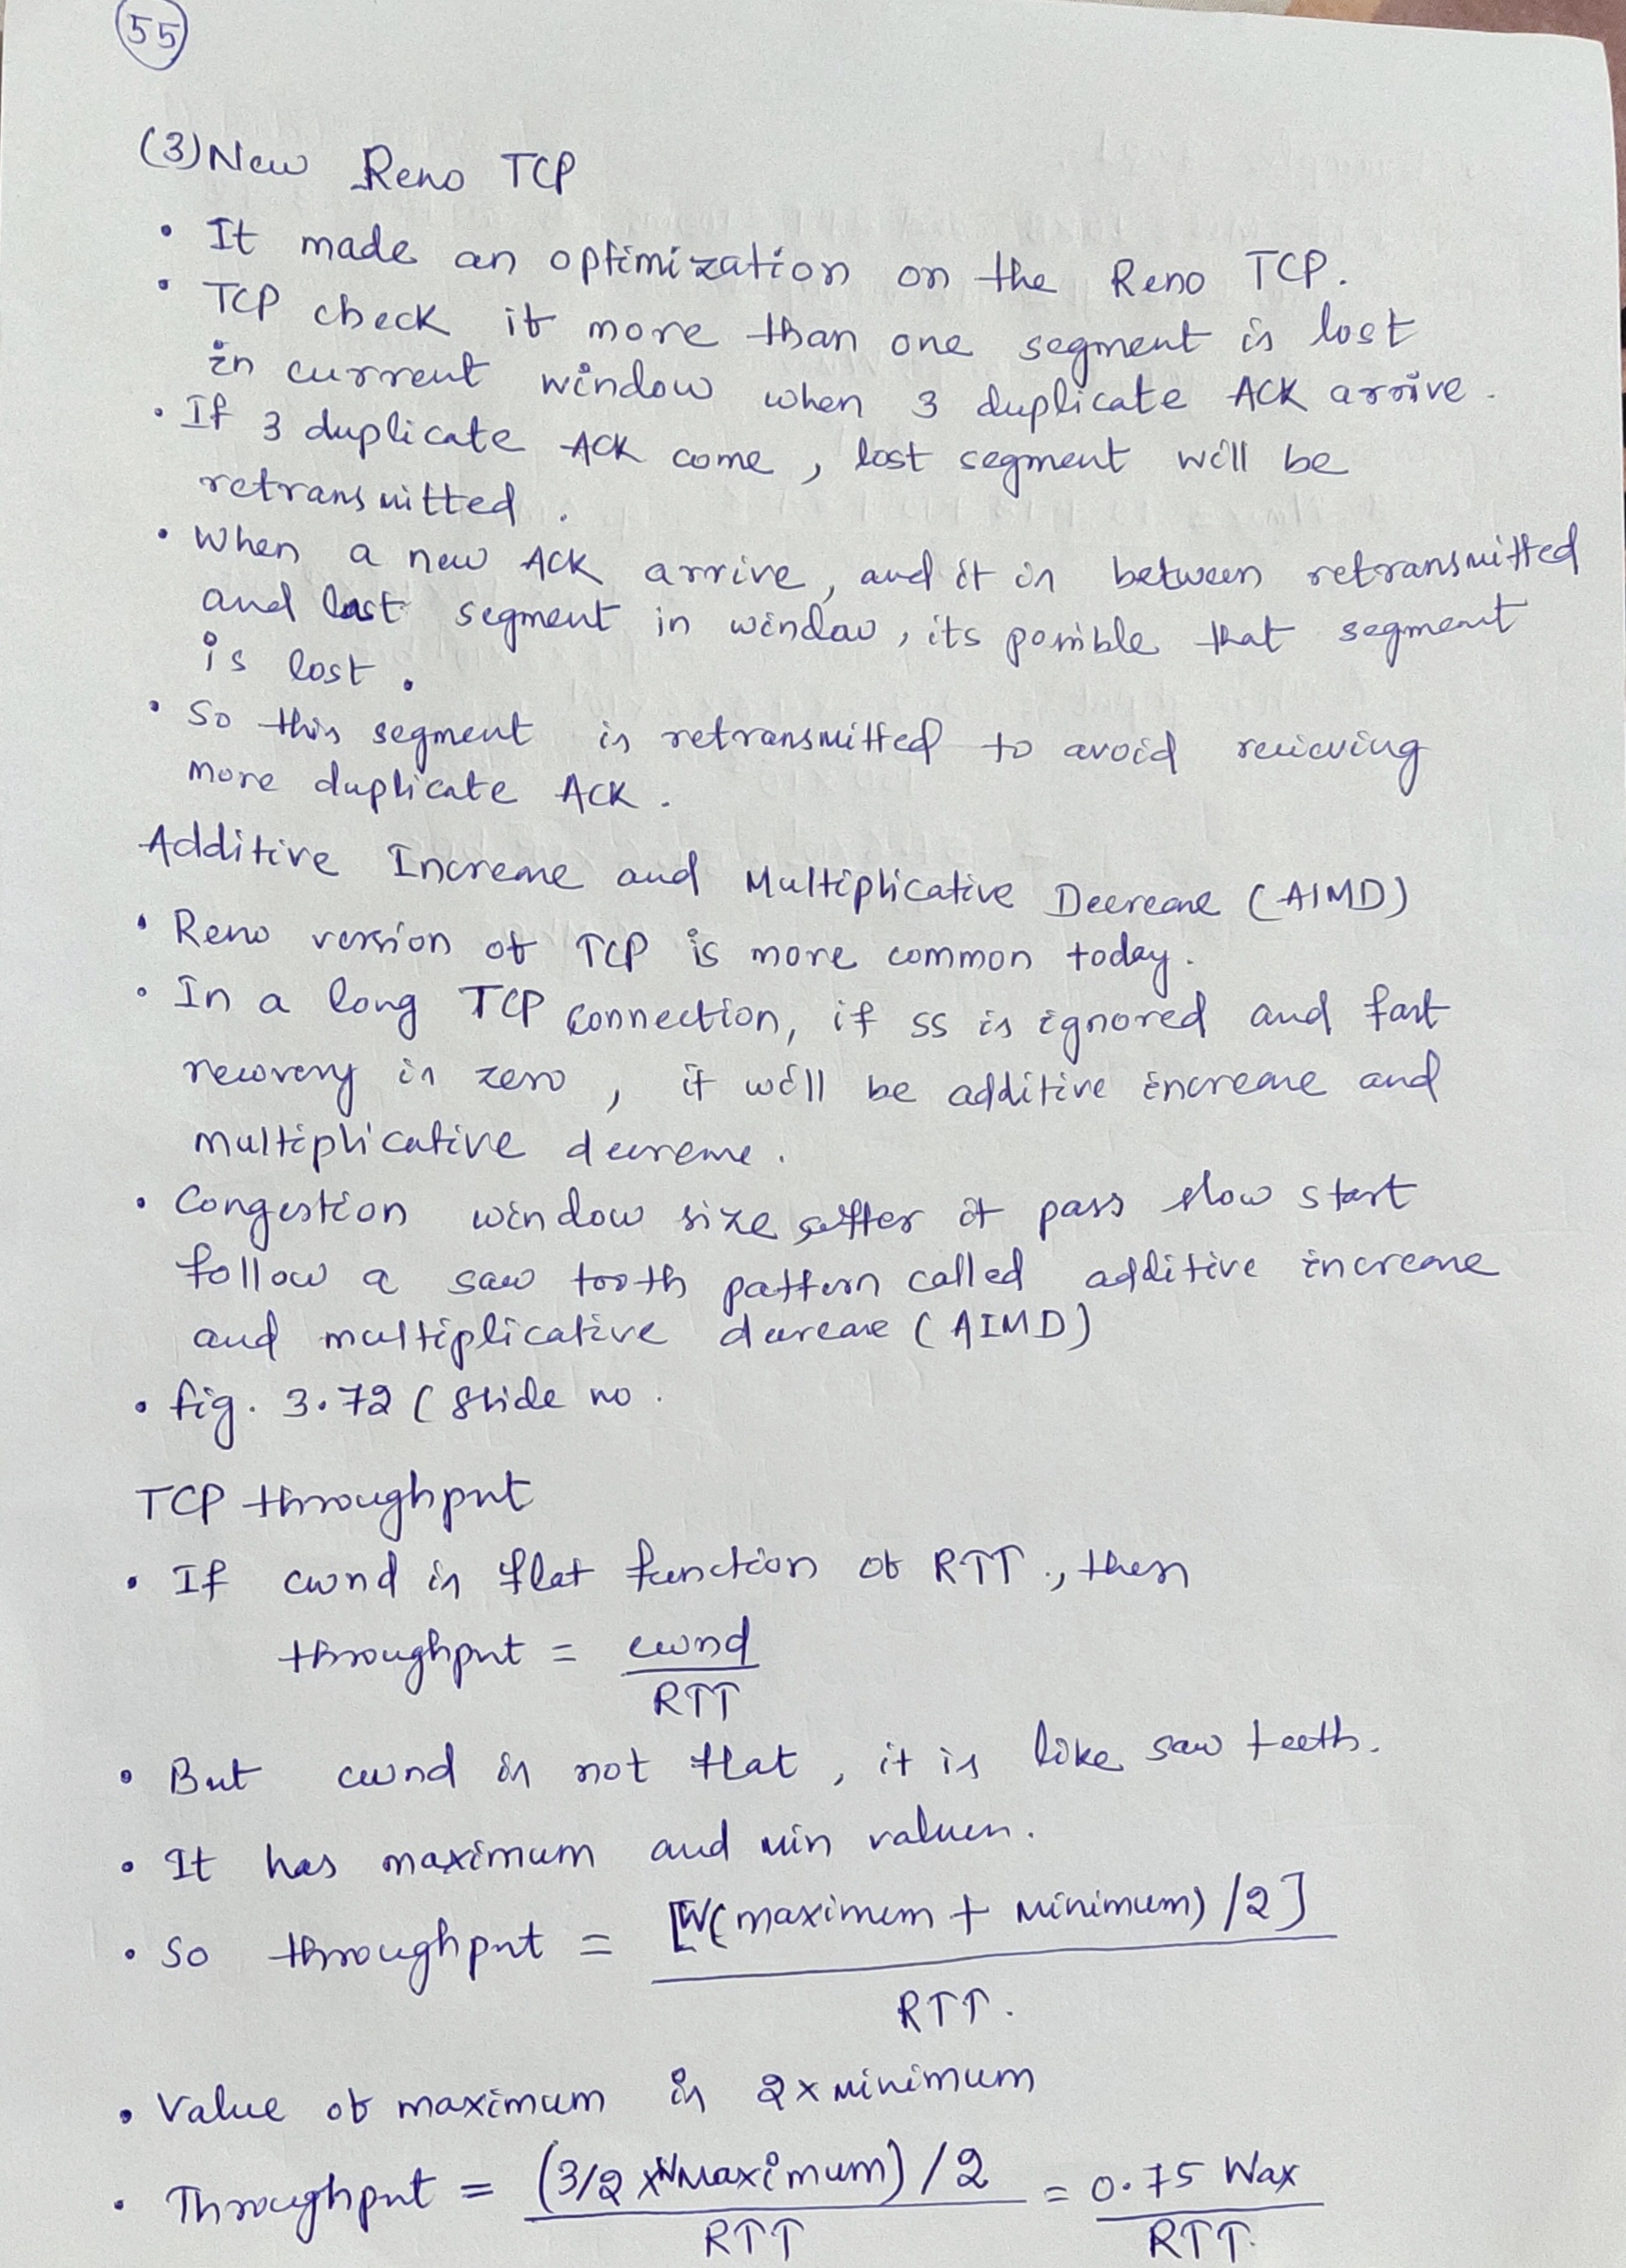 55
(3) New Reno TCP
• It made an optimization on the Reno TCP.
• TCP check if more than one segment is lost
in current window when 3 duplicate ACK arrive.
• If 3 duplicate ACK come, lost segment will be
retransmitted.
• When a new ACK arrive, and it is between retransmitted
and last segment in window, its possible that segment
is lost.
• So this segment is retransmitted to avoid recieving
more duplicate ACK.
Additive Increase and Multiplicative Decrease (AIMD)
• Reno version of TCP is more common today.
• In a long TCP connection, if ss is ignored and fast
recovery is zero, it will be additive increase and
multiplicative decrease.
• Congestion window size after it pass slow start
follow a saw tooth pattern called additive increase
and multiplicative decrease (AIMD)
• fig. 3.72 ( slide no.
TCP throughput
• If cwnd is flat function of RTT., then
throughput = cwnd
RTT
• But cwnd is not flat, it is like saw teeth.
• It has maximum and min values.
• So throughput = [W(maximum + minimum) /2]
RTT.
• Value of maximum is 2 x minimum
• Throughput = (3/2 x Wmaximum) /2 = 0.75 Wax
RTT RTT.